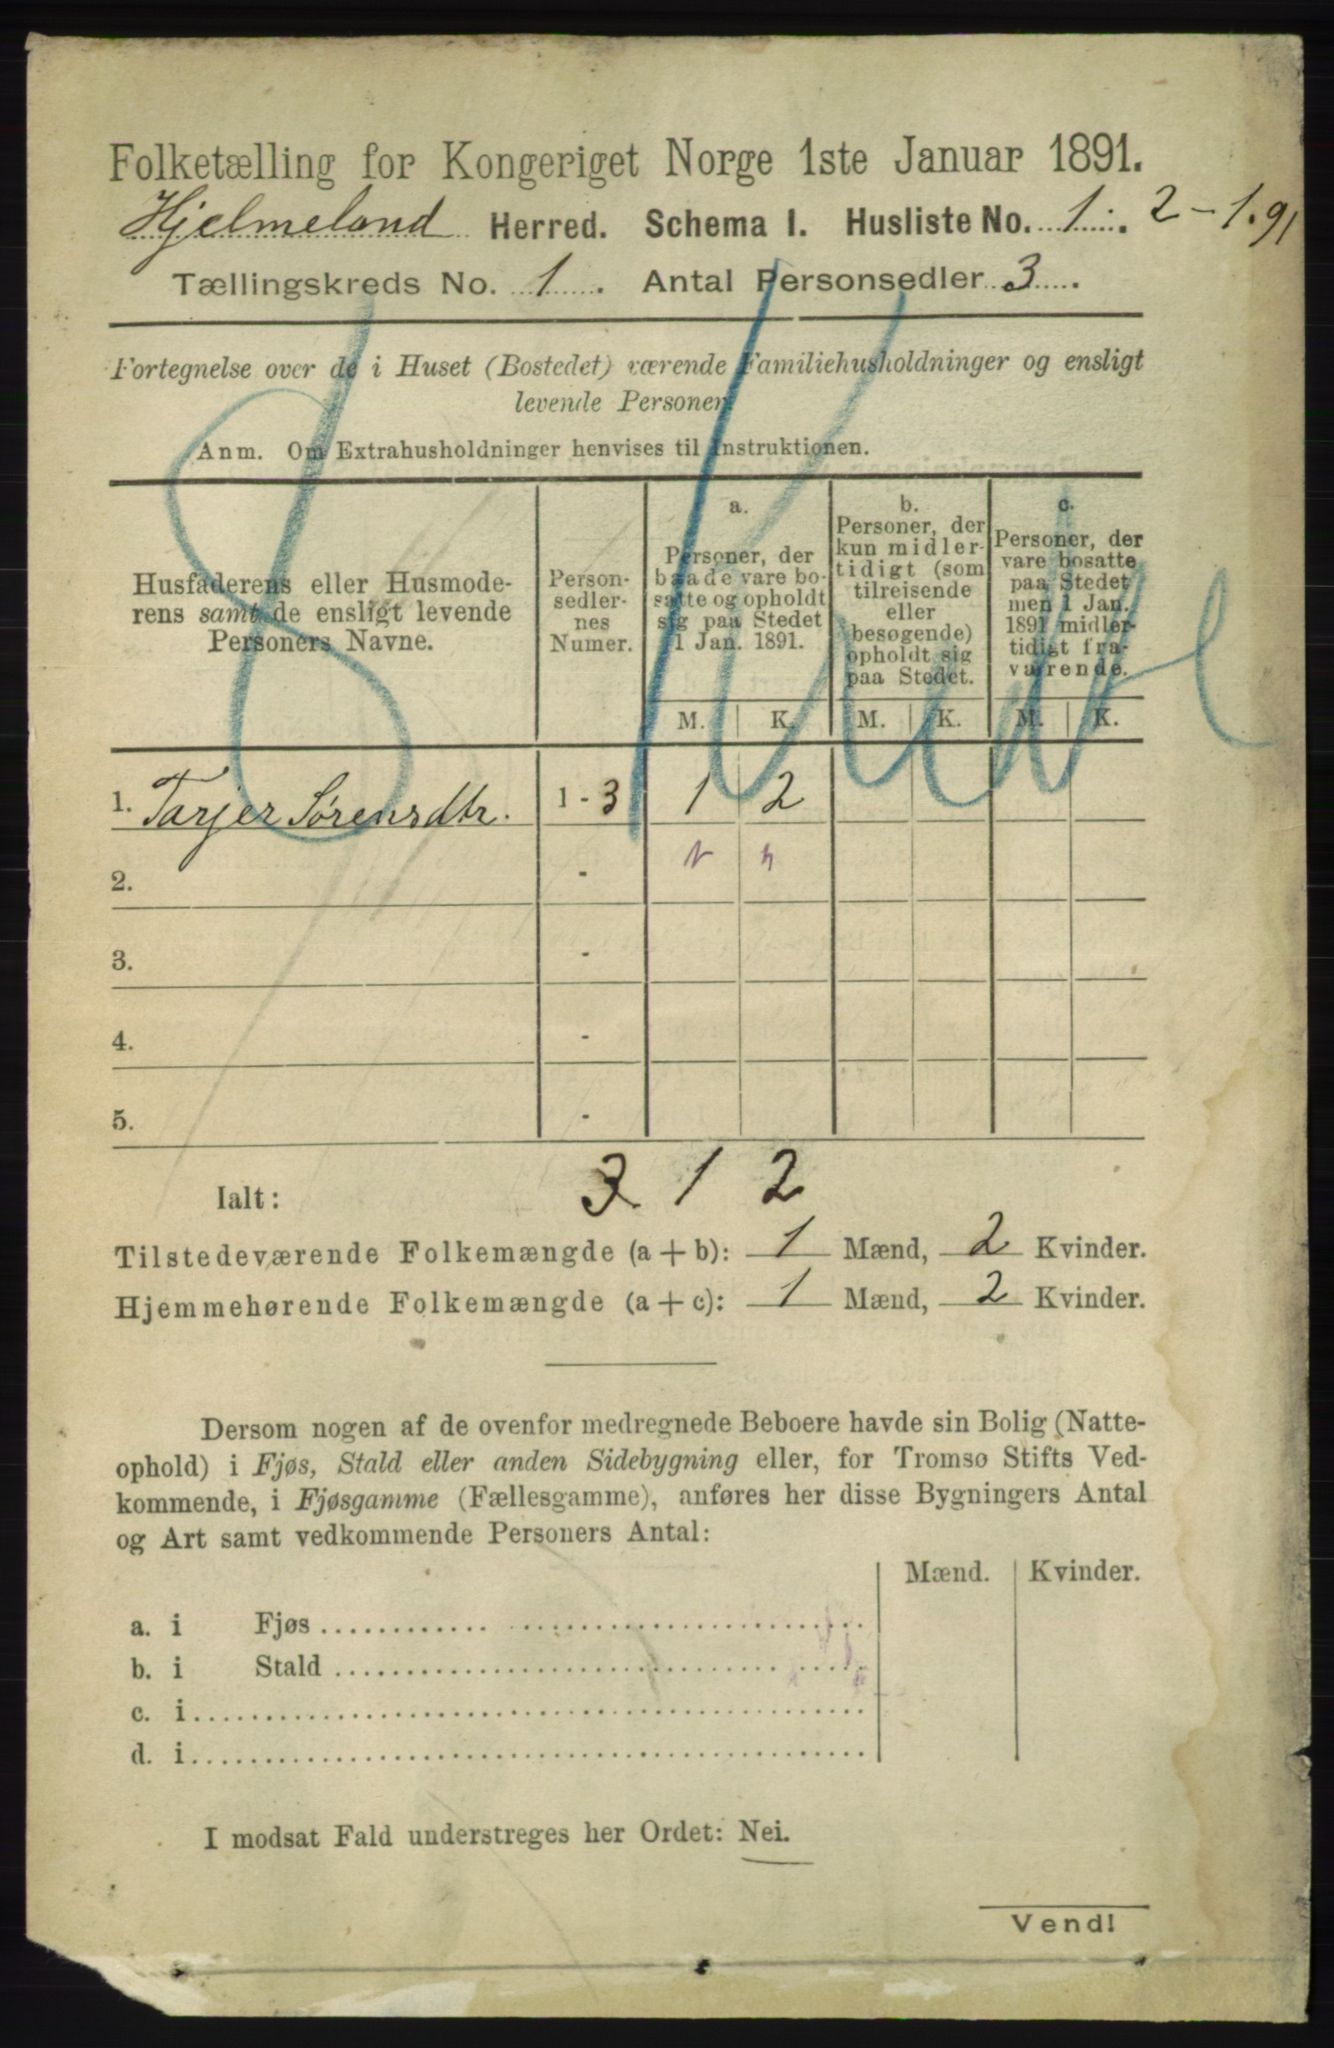 Folketælling for Kongeriget Norge 1ste Januar 1891.
Hjelmeland Herred. Schema I. Husliste No. 1. 2-1.91
Tællingskreds No. 1. Antal Personsedler 3.
Fortegnelse over de i Huset (Bostedet) værende Familiehusholdninger og ensligt
levende Personer.
Anm. Om Extrahusholdninger henvises til Instruktionen.
Husfaderens eller Husmode-
rens samt de ensligt levende
Personers Navne.
Person-
sedler-
nes
Numer.
a.
Personer, der
baade vare bo-
satte og opholdt
sig paa Stedet
1 Jan. 1891.
b.
Personer, der
kun midler-
tidigt (som
tilreisende
eller
besøgende)
opholdt sig
paa Stedet.
c.
Personer, der
vare bosatte
paa Stedet
men 1 Jan.
1891 midler-
tidigt fra-
værende.
M. K. M. K. M. K.
1. Tarjer Sørensdtr. 1-3 1 2
2. -
3. -
4. -
5. -
Ialt: 3 1 2
Tilstedeværende Folkemængde (a+b): 1 Mænd, 2 Kvinder.
Hjemmehørende Folkemængde (a+c): 1 Mænd, 2 Kvinder.
Dersom nogen af de ovenfor medregnede Beboere havde sin Bolig (Natte-
ophold) i Fjøs, Stald eller anden Sidebygning eller, for Tromsø Stifts Ved-
kommende, i Fjøsgamme (Fællesgamme), anføres her disse Bygningers Antal
og Art samt vedkommende Personers Antal:
Mænd. Kvinder.
a. i Fjøs
b. i Stald
c. i
d. i
I modsat Fald understreges her Ordet: Nei.
Vend!